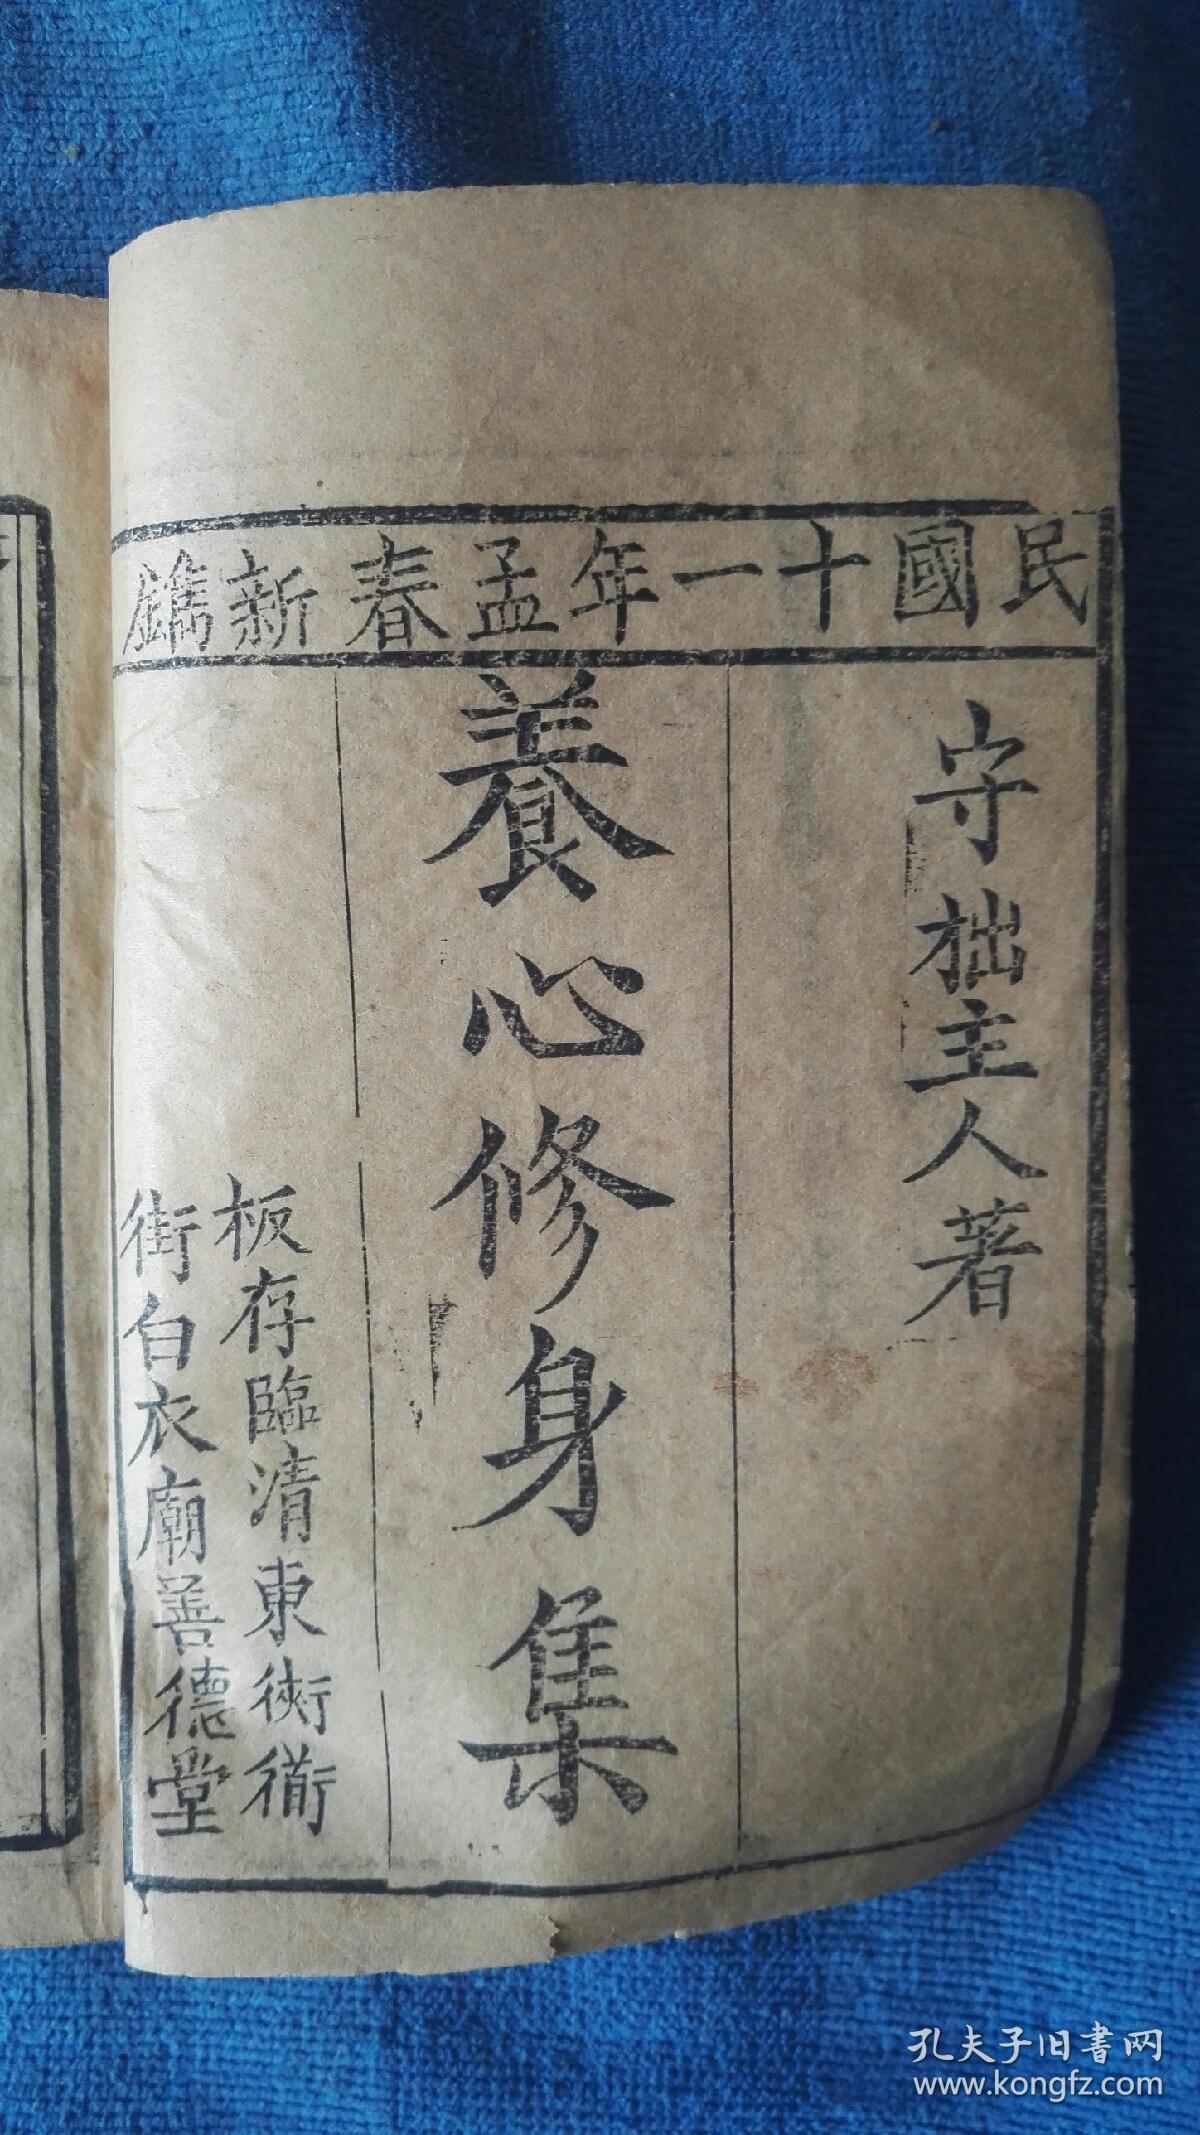 民國十一年孟春新鐫
守拙主人著
養心修身集
板存臨清東衚衕
街白衣廟善德堂
孔夫子旧書网
www.kongfz.com